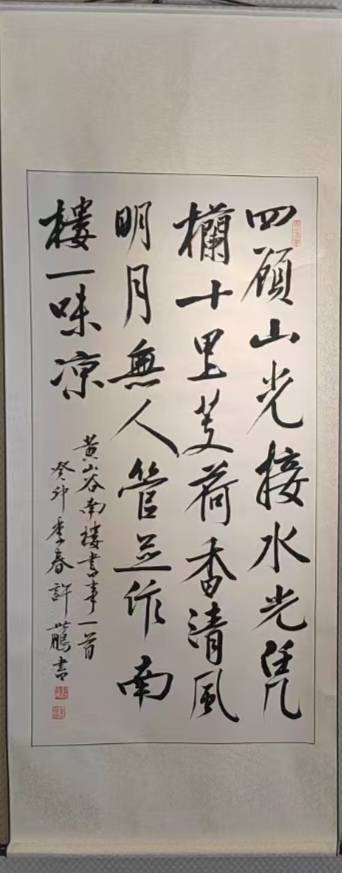 四顾山光接水光凭
欄十里芰荷香清風
明月無人管并作南
樓一味凉
黄山谷南楼書事一首
癸卯季春許鵬書